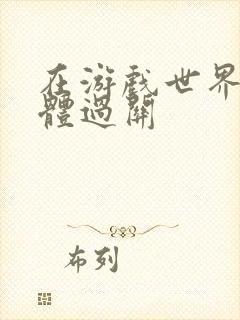 在游戏世界
體過關
布列